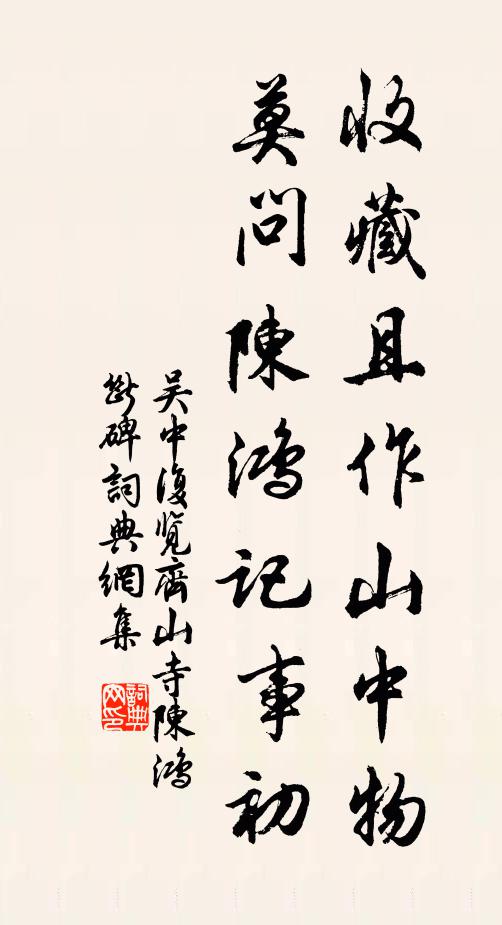 收藏且作山中物
莫問陳鴻記事初
吴中復覽齊山寺陳鴻
斷碑詞典網集
詞典网印